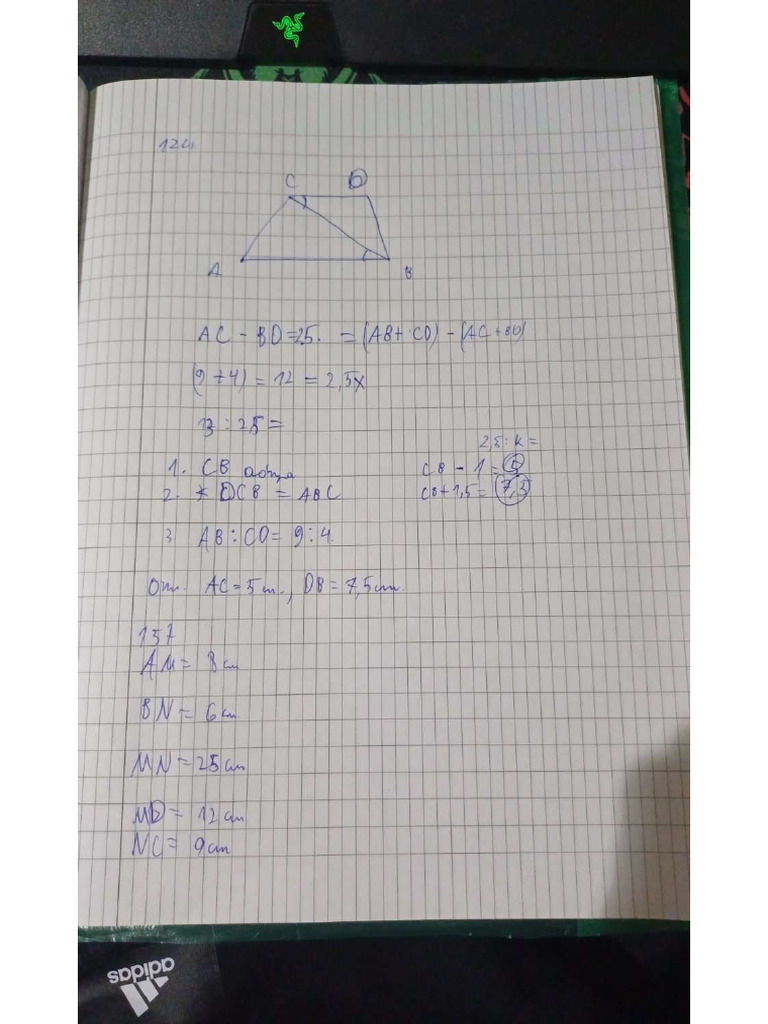 124
C D
A B
AC - BD = 25. = (AB + CD) - (AC + BD)
(9 + 4) = 12 = 2,5x
13 : 25 =
2,5 : k =
1. CB обща
CB - 1 = 5
2. ∢ DCB = ABC
CB + 1,5 = 7,5
3. AB : CD = 9 : 4
Отг. AC = 5 cm., DB = 7,5 cm.
137
AM = 8 cm
BN = 6 cm
MN = 25 cm
MD = 12 cm
NC = 9 cm
adidas